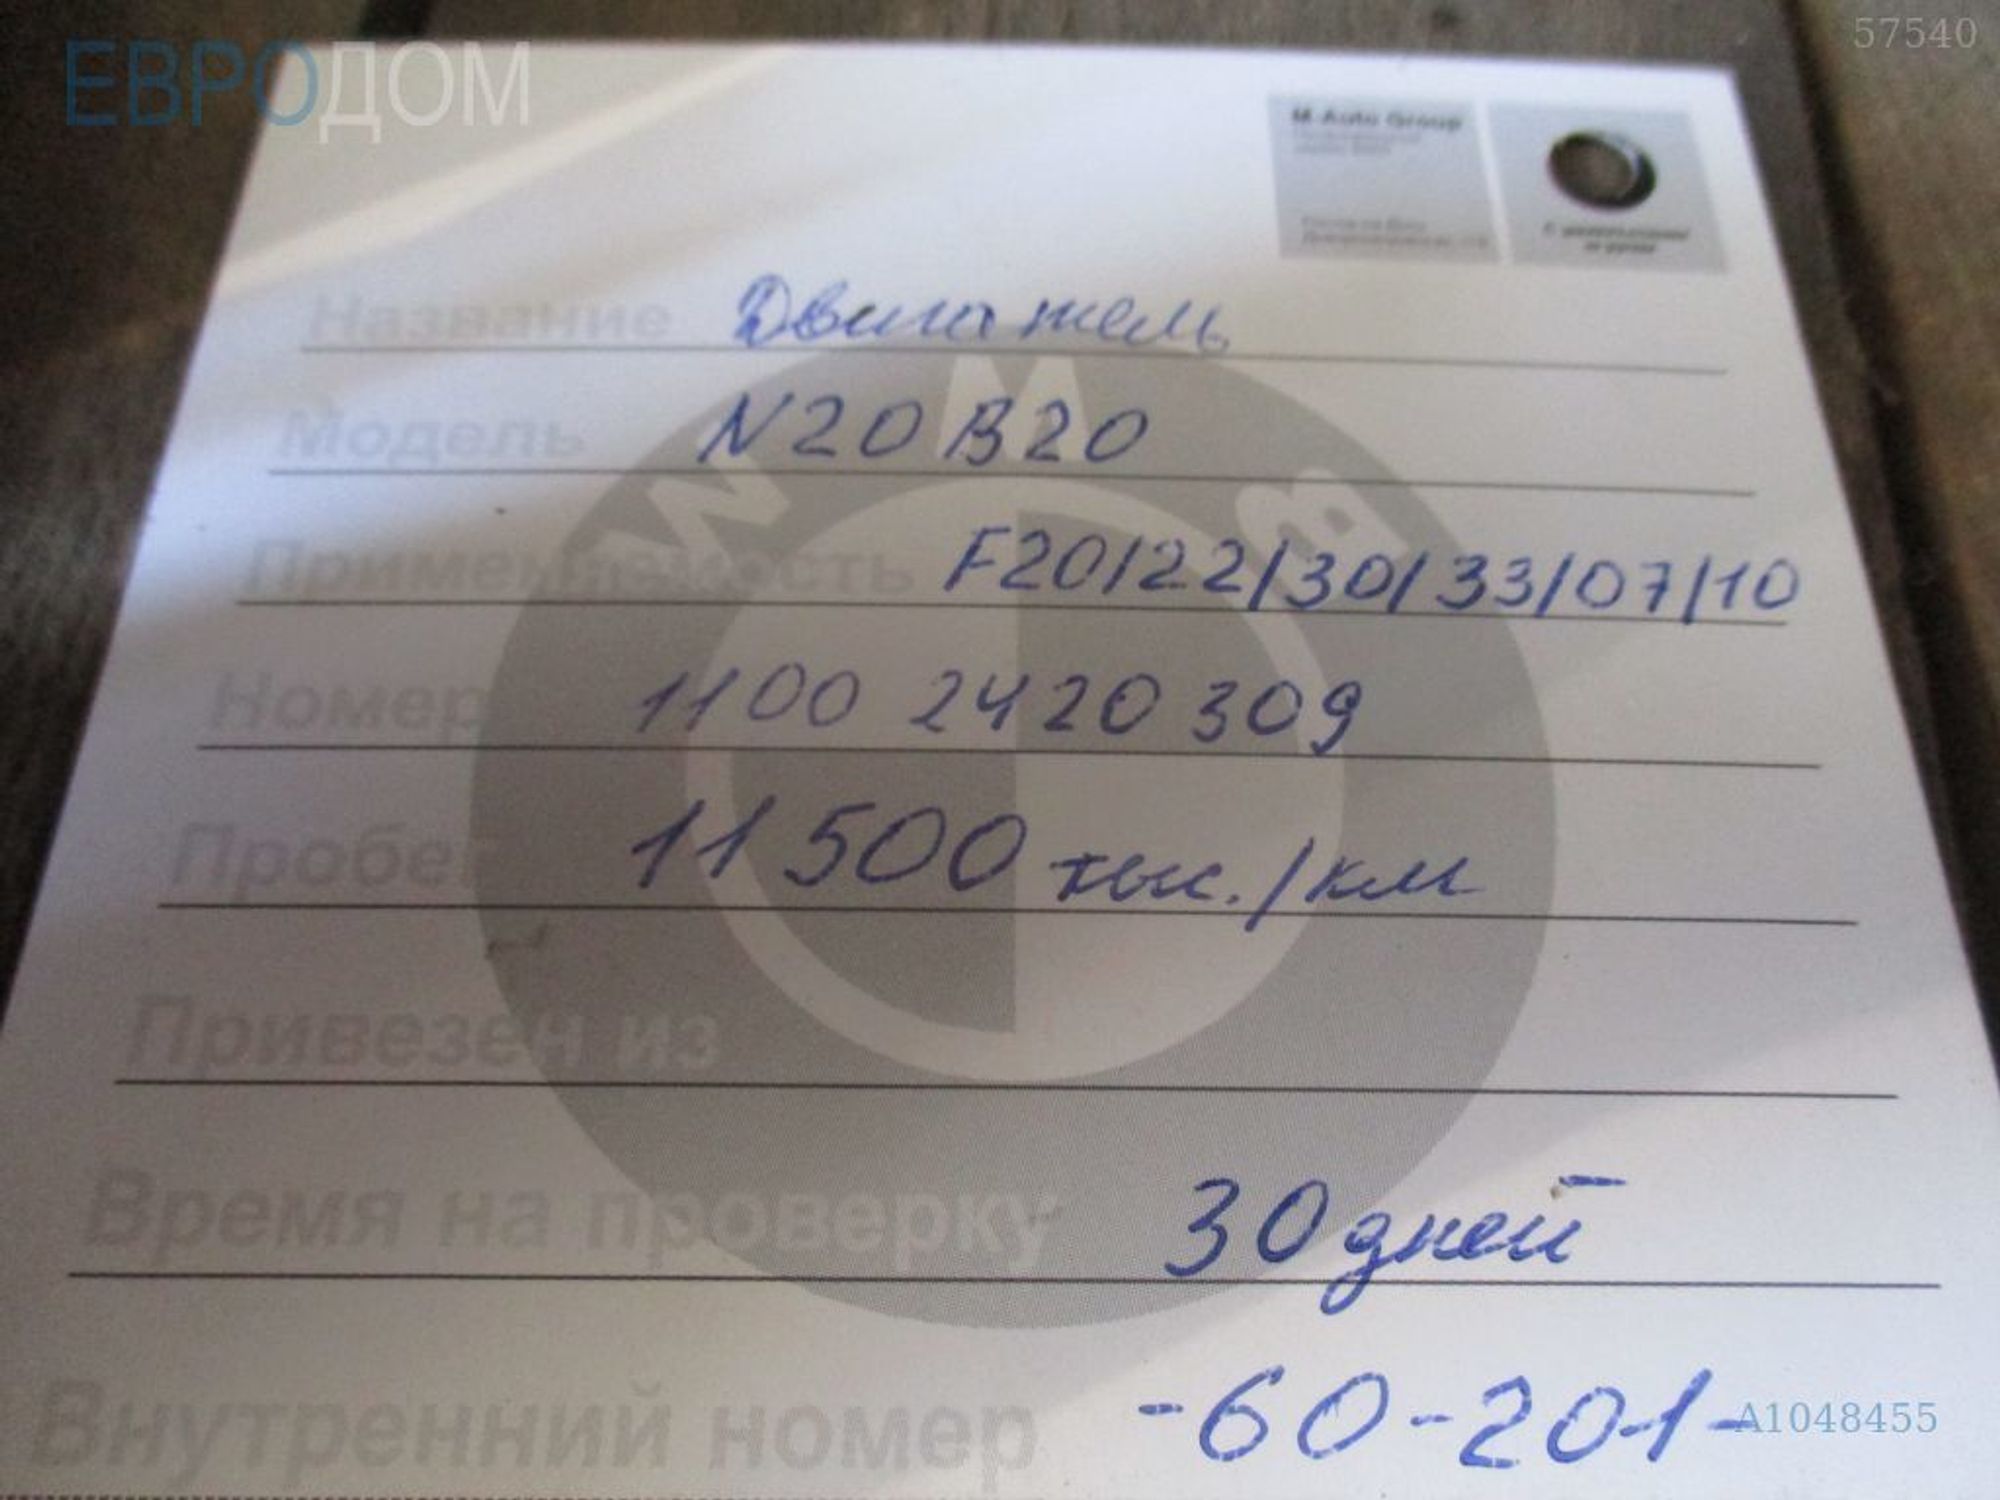 57540
ЕВРОДОМ
M-Auto Group
Название Двигатель
Модель N20B20
Применяемость F20/22/30/33/07/10
Номер 1100 2420309
Пробег 11500 тыс./км
Привезен из
Время на проверку 30 дней
Внутренний номер -60-201-
A1048455